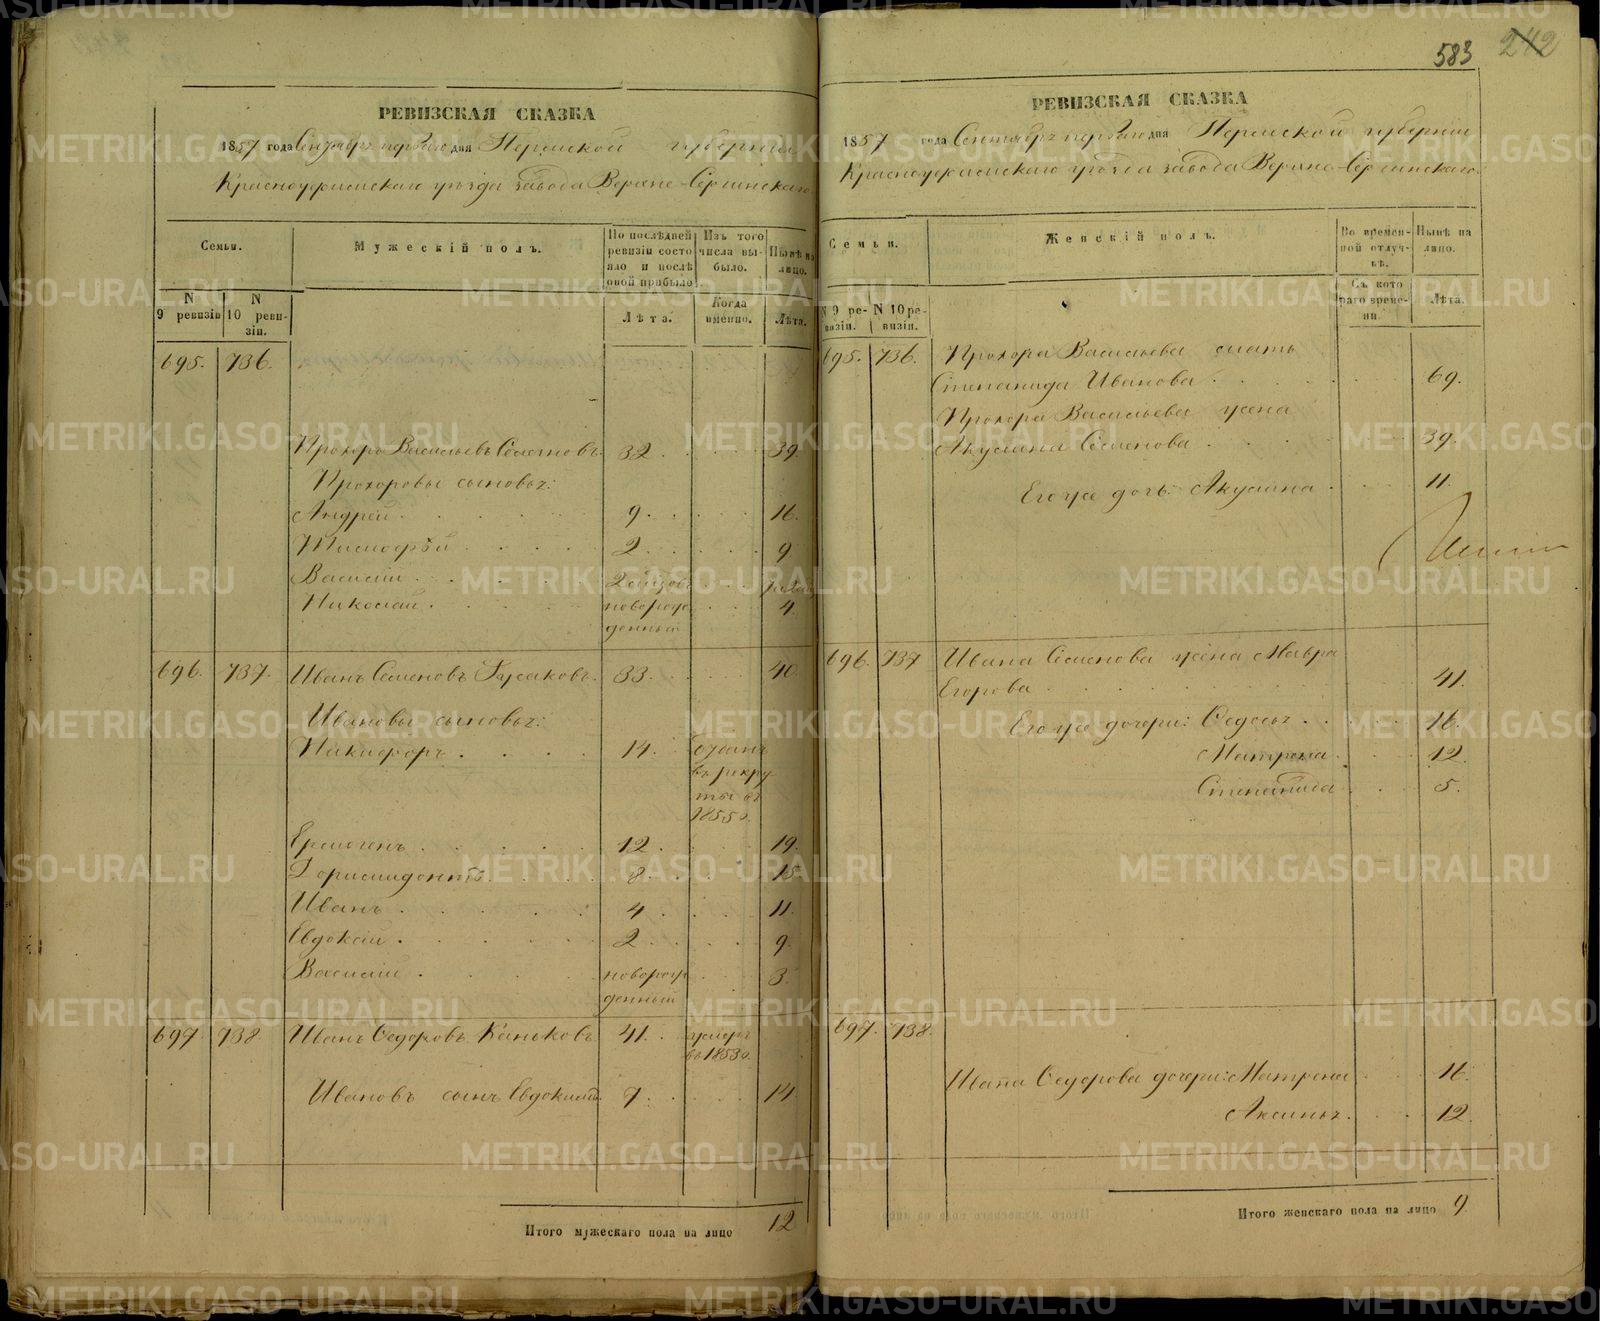 583 242
РЕВИЗСКАЯ СКАЗКА
1857 года Сентября первого дня Пермской губернии
Красноуфимскаго уезда завода Верхне-Сергинскаго
Семьи.
Мужескій полъ.
По последней ревизіи состояло и после оной прибыло
Изъ того числа выбыло.
Ныне на лицо.
N 9 ревизіи
N 10 ревизіи.
Лѣта.
Когда именно.
Лѣта.
695. 736.
Прохоръ Васильевъ Семеновъ. 32. 39.
Прохоровы сыновья:
Андрей. 9. 16.
Тимофей 2. 9.
Василій. 7
Николай. новорожденный 4.
696. 737. Иванъ Семеновъ 33. 40.
Ивановы сыновья:
Никифоръ. 14. отданъ въ рекруты въ 1855 г.
Ермогенъ. 12. 19.
8. 15.
Иванъ. 4 11.
Евдокій. 2. 9.
Василій. новорожденный 3.
697. 738. Иванъ Федоровъ Каньковъ. 41. умеръ въ 1853 г.
Ивановъ сынъ Евдокимъ. 7. 14
Итого мужескаго пола на лицо 12
РЕВИЗСКАЯ СКАЗКА
1857 года Сентября первого дня Пермской губерніи
Красноуфимскаго уезда завода Верхне-Сергинскаго
Семьи.
Женскій полъ.
Во временной отлучкѣ.
Нынѣ на лицо.
N 9 ревизіи.
N 10 ревизіи.
Съ котораго времени
Лѣта.
695. 736. Прохора Васильева мать
Степанида Иванова. 69.
Прохора Васильева жена
Акулина Семенова 39.
Его же дочь: Акулина. 11.
696. 737 Ивана Семенова жена Мавра
Егорова. 41.
Его же дочери: Федосья. 16.
Матрена. 12.
Степанида 5.
697. 738.
Ивана Федорова дочери: Матрена 16.
Аксинья. 12.
Итого женскаго пола на лицо 9
METRIKI.GASO-URAL.RU